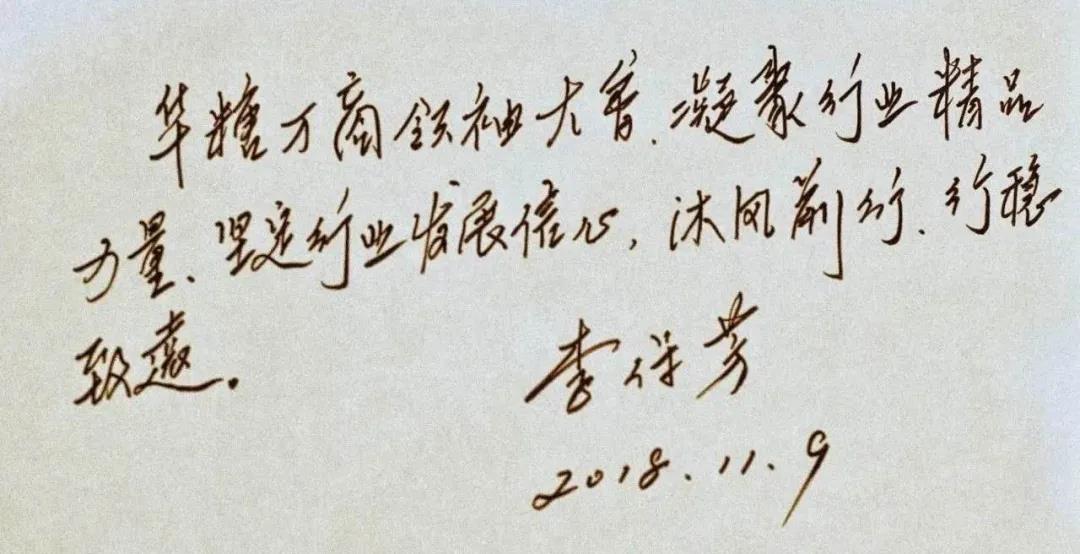 华糖万商领袖大会、凝聚行业精品
力量、坚定行业发展信心,沐风前行、行稳
致远。
李保芳
2018.11.9